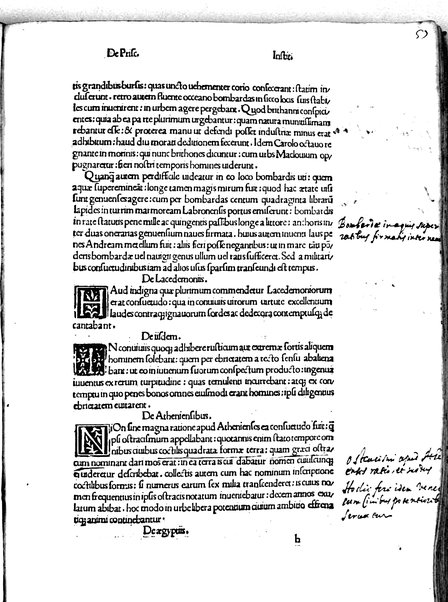 De Prisc. Instit. 53
tis grandibus bursis: quas uncto uehementer corio confecerant: statim in
cluserunt. retro autem fluente occeano bombardas in sicco locis suis stabi
les cum inuenirent: in urbem agere pergebant. Quod brithanni conspici
entes: quia ab ea parte plurimum urgebantur: quam natura munitissimam
rebantur esse: & proterea manu ut defendi posset industriæ minus erat
adhibitum: haud diu morati deditionem fecerunt. Idem Carolo octauo re
gnante in morinis: qui nunc brithones dicuntur: cum urbs Maclouium op
pugnaretur: fieri nostri temporis homines uiderunt.
Quanq̃ autem perdifficile uideatur in eo loco bombardis uti: quem
aquæ supereminent: longe tamen magis mirum fuit: quod hac ætate uisi
sunt genuenses agere: cum per bombardas centum quadraginta librarũ
lapides in turrim marmoream Labronensis portus emiserunt: bombardis
in rate statutis pene mille ac quingentis passibus longe a littore: anchoris in
ter duas onerarias genuensium naues firmata. huius autem inuenti laus pe
nes Andream metellum fuit: aliis fieri posse negantibus: ut in mare tãti põ
deris bombardæ uel nauigii genus ullum uel ratis sufficeret. Sed a militari
bus consuetudinibus iam ad alios usus sparsim transeundi est tempus.
De Lacedemoniis.
HAud indigna quæ plurimum commendetur Lacedemoniorum
erat consuetudo: qua in conuiuiis uirorum uirtute excellentium
laudes contraq; ignauorum sordes ac dedecora contemptusq; de
cantabant.
De iisdem.
IN conuiuiis quoq; adhibere rusticum aut extremæ sortis aliquem
hominem solebant: quem per ebrietatem a tecto sensu abaliena
bant: ut eo in iuuenum suorum conspectum producto: ingenui
iuuenes ex rerum turpitudine: quas temulenti incurrebant: atq; ex con
temptu in quo penes bonos omnes eiusmodi erant homines: ipsi diligentius
ebrietatem euitarent.
De Atheniensibus.
NOn sine magna ratione apud Athenienses ea consuetudo fuit: q̃
ipsi ostracismum appellabant: quotannis enim stato tempore om
nibus ciuibus coctilis quadrata formæ terra: quam græci ostra
cum nominant dari mos erat: in ea terra is cui dabatur nomen cuiuscunq;
uideretur describebat. collectis autem cum hac nominum inscriptione
coctilibus formis: si numerus earum sex milia transcenderet: is cuius no
men frequentius in ipsis ostracis notatum inueniebatur: decem annos exu
latum abibat. hoc modo in urbe libera potentium ciuium ambitio effrena
tiq; animi continebantur.
De ægyptiis.
h
Bombardæ in aquis super
ratibus firmatis
ratio